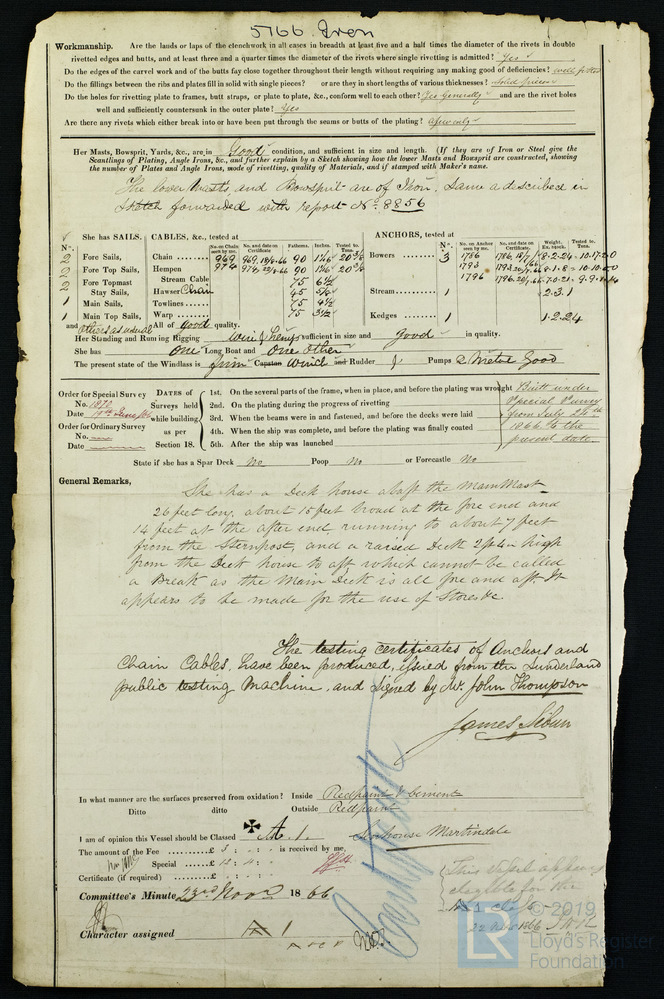 5766 Iron
Workmanship. Are the lands or laps of the clenchwork in all cases in breadth at least five and a half times the diameter of the rivets in double
rivetted edges and butts, and at least three and a quarter times the diameter of the rivets where single rivetting is admitted? Yes
Do the edges of the carvel work and of the butts fay close together throughout their length without requiring any making good of deficiencies? well fitted
Do the fillings between the ribs and plates fill in solid with single pieces? or are they in short lengths of various thicknesses? Solid pieces
Do the holes for rivetting plate to frames, butt straps, or plate to plate, &c., conform well to each other? Yes Generally and are the rivet holes
well and sufficiently countersunk in the outer plate? Yes
Are there any rivets which either break into or have been put through the seams or butts of the plating? a few only
Her Masts, Bowsprit, Yards, &c., are in Good condition, and sufficient in size and length. (If they are of Iron or Steel give the
Scantlings of Plating, Angle Irons, &c., and further explain by a Sketch showing how the lower Masts and Bowsprit are constructed, showing
the number of Plates and Angle Irons, mode of rivetting, quality of Materials, and if stamped with Maker's name.
The lower Masts and Bowsprit are of Iron, Same as described in
Sketch forwarded with report No. 8856
She has SAILS. CABLES, &c., tested at ANCHORS, tested at
No. No. on Chain seen by me. No. and date on Certificate Fathoms. Inches. Tested to. Tons. No. No. on Anchor seen by me. No. and date on Certificate. Weight. Ex. Stock. Tested to. Tons.
2 Fore Sails, Chain 969 90 Bowers 3 1786
2 Fore Top Sails, Hempen 974 90 1793
2 Fore Topmast Stream Cable 75 6½ 1796
Stay Sails, Hawser Chain 45 Stream 1 2.3.1
1 Main Sails, Towlines 75 4½
1 Main Top Sails, Warp 75 3½ Kedges 1 1.2.24
and others as usual All of good quality.
Her Standing and Running Rigging Wire & hemp sufficient in size and Good in quality.
She has One Long Boat and One other
The present state of the Windlass is Capstan Winch and Rudder Pumps 2 Metal Good
Order for Special Survey
No. 1872
Date
Order for Ordinary Survey
No.
Date
DATES of Surveys held while building as per Section 18.
1st. On the several parts of the frame, when in place, and before the plating was wrought
2nd. On the plating during the progress of rivetting
3rd. When the beams were in and fastened, and before the decks were laid
4th. When the ship was complete, and before the plating was finally coated
5th. After the ship was launched
Built under
Special Survey
from July 26th
1866 to the
present date
State if she has a Spar Deck No Poop No or Forecastle No
General Remarks,
She has a Deck house abaft the Main Mast
26 feet long, about 15 feet broad at the fore end and
14 feet at the after end running to about 7 feet
from the Sternpost, and a raised Deck 2ft 4in high
from the Deck house to aft which cannot be called
a Break as the Main Deck is all fore and aft. It
appears to be made for the use of Stores &c
The testing certificates of Anchors and
Chain Cables, have been produced, issued from the Sunderland
public testing Machine, and signed by Mr. John Thompson
James
In what manner are the surfaces preserved from oxidation? Inside Redpaint & Cement
Ditto ditto Outside Redpaint
I am of opinion this Vessel should be Classed A.1. Martindale
The amount of the Fee £ 5 : : is received by me,
Special £
Certificate (if required) £ : :
Committee's Minute 23rd Novr. 1866
Character assigned A 1
This vessel appears
eligible for the
A 1 class
22 Nov 1866
LR © 2019
Lloyd's Register
Foundation